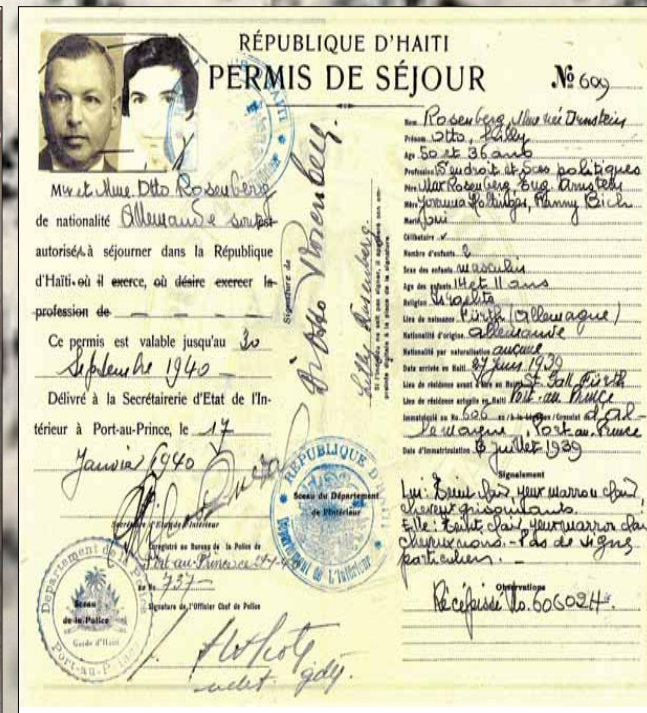 RÉPUBLIQUE D'HAITI
PERMIS DE SÉJOUR
No 609
Mr et Mme. Otto Rosenberg
de nationalité Allemande
autorisé à séjourner dans la République
d'Haïti où il exerce, où désire exercer la
profession de
Ce permis est valable jusqu'au 30
Septembre 1940
Délivré à la Secrétairerie d'Etat de l'In-
térieur à Port-au-Prince, le 17
Janvier 1940
Secrétaire d'Etat de l'Intérieur
Enregistré au Bureau de la Police de
Port-au-Prince ce
du No. 737
Signature de l'Officier Chef de Police
Département de la Police
Sceau
de la Police
Garde d'Haïti
Port-au-Prince
Signature de
Dr Otto Rosenberg.
Rosenberg.
RÉPUBLIQUE D'HAITI
Sceau du Département
de l'Intérieur
Département de l'Intérieur
Nom Rosenberg, Mme née
Prénom Otto,
Age 50 et 36 ans
Profession Dr en droit et Sces politiques
Père Max Rosenberg, Eug.
Mère
Marié oui
Célibataire
Nombre d'enfants 2
Sexe des enfants masculin
Age des enfants 14 et 11 ans
Religion Israélite
Lieu de naissance Fürth (Allemagne)
Nationalité d'origine Allemande
Nationalité par naturalisation aucune
Date arrivée en Haïti 27 juin 1939
Lieu de résidence avant St Gall, Fürth
Lieu de résidence actuelle en Haïti Port-au-Prince
Immatriculé au No 606 d'Al-
lemagne, Port-au-Prince
Date d'Immatriculation juillet 1939
Signalement
Lui: Teint clair, yeux marron clair,
cheveux grisonnants.
Elle: teint clair, yeux marron clair
cheveux noirs. - Pas de signe
particulier.
Observations
Récépissé No. 606024